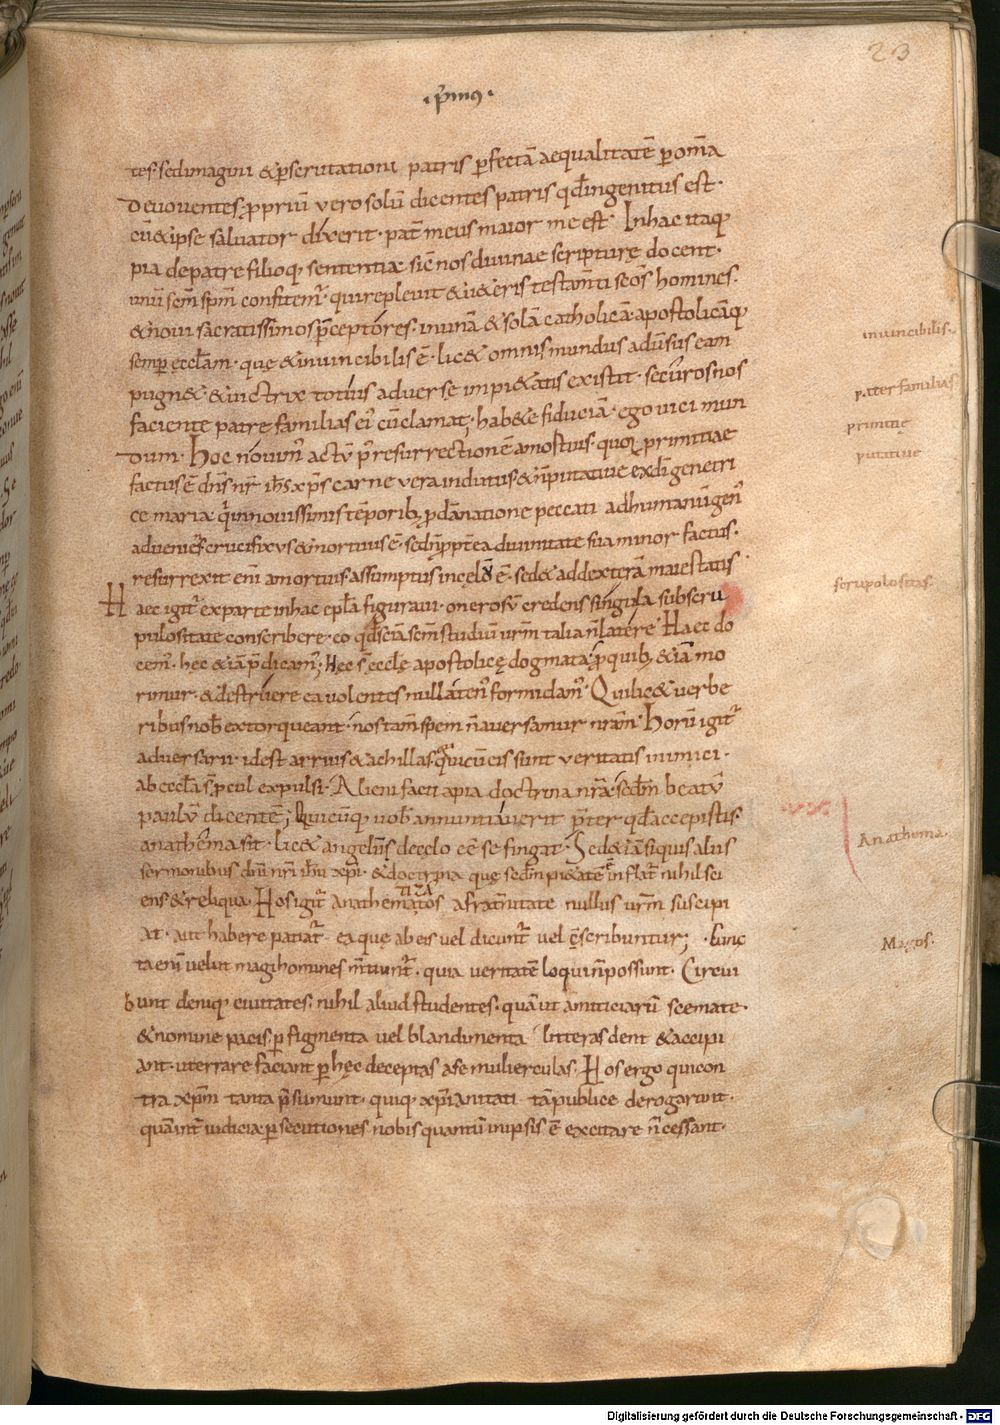 23
·p̄mus·
tes. sed imagini &p̱scrutationi patris p̱fectā aequalitatē p̱ om̄a
devoventes, ꝓpriū vero solū dicentes patris qđ ingenitus est.
cū &ipse salvator dixerit. pat̄ meus maior me est. In hac itaq;
pia de patre filioq; sententia, sic̄ nos divinae scripturę docent.
unū sc̄m sp̄m confitem̄. qui replevit & u&eris testam̄ti sc̄os homines.
&novi sacratissimos p̄ceptores. in unā & solā catholicā. apostolicāq;
semp̱ ęccl̄am. quę &invincibilis ē. lic& omnis mundus adūsus eam
pugn&. &victrix totius adverse impi&atis existit. securos nos
faciente patre familias ei' cū clamat, hab&e fiduciā. ego vici mun
dum. Hoc novim' actū p̱ resurrectionē a mortuis. quoꝝ primitiae
factus ē dn̄s nr̄ ih̄s xp̄s carne vera indutus &n̄ putative ex dī genetri
ce maria, qui in novissimis tēporib; ꝓ dānatione peccati ad humanū gen'
adveniēs. crucifixus &mortuus ē. sed n̄ ꝓpt̄ea divinitate sua minor factus.
resurrexit eni a mortuis. assumptus in celū ē. sed& ad dexterā maiestatis
Haec igit̄ ex parte in hac epl̄a figuravi. onerosū credens singula sub scru
pulositate conscribere. eo qđ sciā sc̄m studiū vr̄m talia n̄ latere. Haec do
cem'. hęc &iā p̄dicam'; Hęc s̄ ęccl̄ę apostolicę dogmata, ꝓ quib; &iā mo
rimur. &destruere ea volentes nullaten' formidam'. Qui lic& verbe
ribus nob̄ extorqueant. nos tam̄ spem n̄ aversamur nr̄am. Horū igit̄
adversarii. id est arrius &achillas, &quicū eis sunt veritatis inimici.
ab eccl̄a s̄ p̱cul expulsi. Alieni facti a pia doctrina nr̄a. sed̄m beatū
paulū dicentē; Quicūq; vob̄ annuntiaverit p̄ter qđ accepistis.
anathema sit. lic& angelus de cęlo eē se fingat. Sed &iā siquis alius
sermonibus dn̄i nr̄i ih̄u xp̄i. &doctrina quę sed̄m pi&atē ē inflat̄ nihil sci
ens &reliqua. Hos igit̄ anathematizatos a frat̄nitate nullus vr̄m suscipi
at. aut habere patiat̄. ea quę ab eis vel dicunt̄ vel c̄scribuntur;
ta eni velut magi homines m̄tiunt̄. quia veritatē loqui n̄ possunt. Circui
bunt deniq; civitates. nihil aliud studentes. quā ut amiticiarū scemate.
&nomine pacis, p̱ figmenta vel blandimenta litteras dent &accipi
ant. ut errare faciant p̱ hęc deceptas a se mulierculas. Hos ergo qui con
tra xp̄m tanta p̄sumunt. quiq; xp̄ianitati tā publice derogarunt.
quā int̄ iudicia p̱secutiones nobis quantū in ipsis ē excitare n̄ cessant.
invincibilis.
pater familias
primitię
putative
scrupolositas.
Anathema.
Magos.
Digitalisierung gefördert durch die Deutsche Forschungsgemeinschaft - DFG